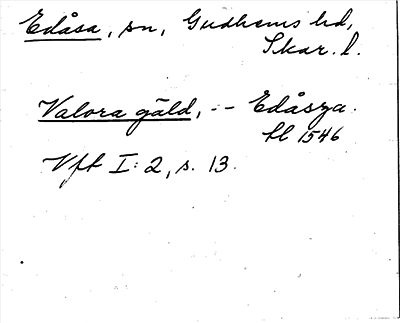 Edåsa, sn, Gudhems hd,
Skar. l.
Valora gäld, -- Edåsza.
tl 1546
Vft I: 2, s. 13.